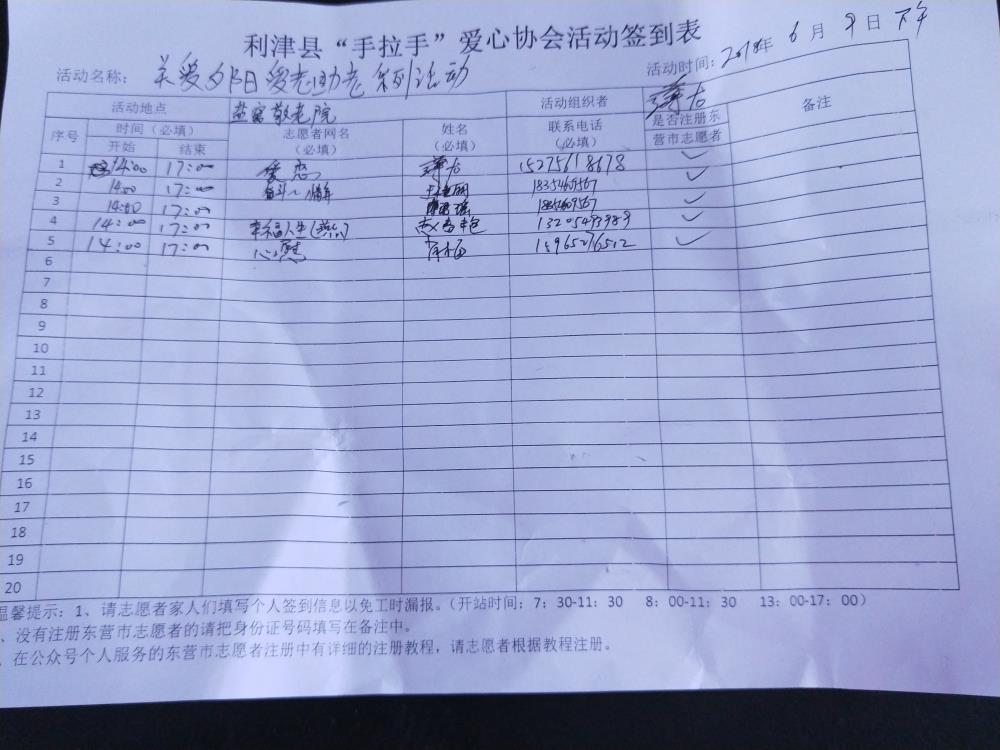 利津县“手拉手”爱心协会活动签到表
活动名称： 关爱夕阳 爱老助老 系列活动 活动时间：2018年 6月 9日 下午
活动地点 盐窝敬老院 活动组织者
序号 时间（必填） 志愿者网名（必填） 姓名（必填） 联系电话（必填） 是否注册东营市志愿者 备注
开始 结束
1 14:00 17:00 15275618678 ✓
2 14:00 17:00 ✓
3 14:00 17:00 ✓
4 14:00 17:00 幸福人生(燕) 13205493989 ✓
5 14:00 17:00 15965276512 ✓
6
7
8
9
10
11
12
13
14
15
16
17
18
19
20
温馨提示：1、请志愿者家人们填写个人签到信息以免工时漏报。（开站时间：7：30-11：30 8：00-11：30 13：00-17：00）
、没有注册东营市志愿者的请把身份证号码填写在备注中。
、在公众号个人服务的东营市志愿者注册中有详细的注册教程，请志愿者根据教程注册。